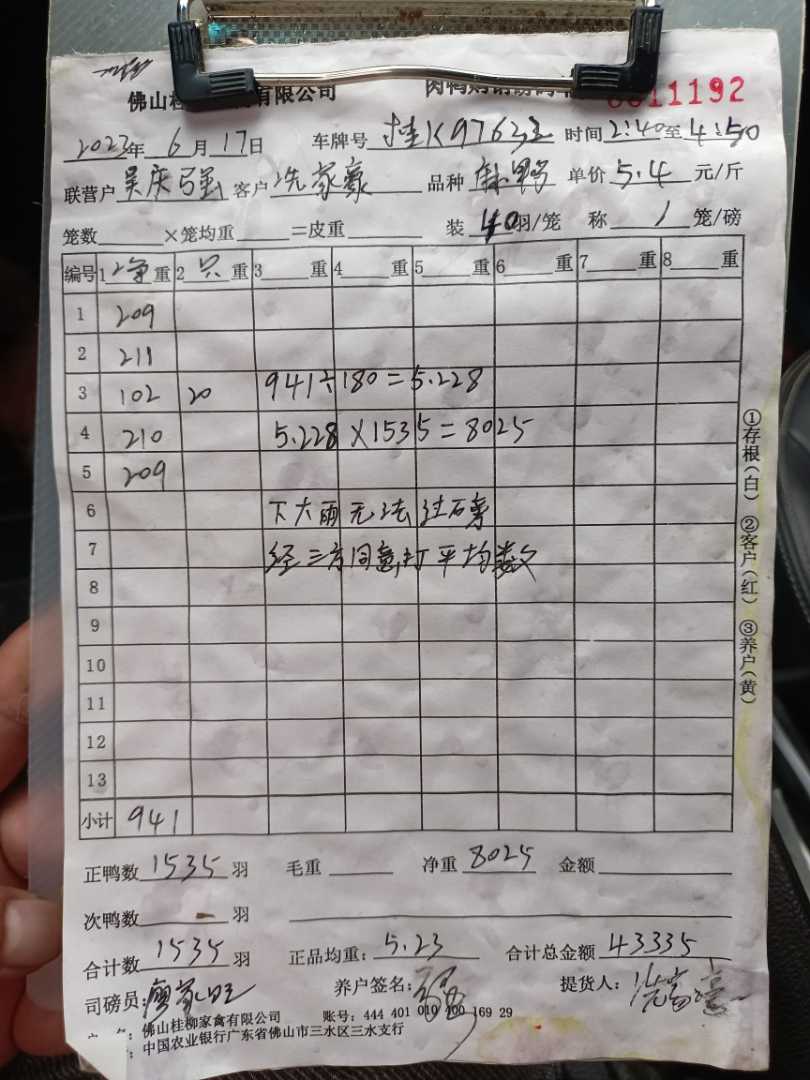 佛山桂 有限公司 0011192
2023年6月17日 车牌号 桂K9763 时间2:40至4:50
联营户 吴庆强 客户 冼家豪 品种 麻鸭 单价 5.4 元/斤
笼数 ×笼均重 =皮重 装 40羽/笼 称 1 笼/磅
编号 1净重 2只重 3 重 4 重 5 重 6 重 7 重 8 重
1 209
2 211
3 102 20 941÷180=5.228
4 210 5.228×1535=8025
5 209
6 下大雨无法过磅
7 经三方同意,打平均数
8
9
10
11
12
13
小计 941
①存根(白) ②客户(红) ③养户(黄)
正鸭数 1535 羽 毛重 净重 8025 金额
次鸭数 - 羽
合计数 1535 羽 正品均重: 5.23 合计总金额 43335
司磅员: 廖家旺 养户签名: 提货人: 冼家豪
: 佛山桂柳家禽有限公司 账号: 444 401 010 400 169 29
: 中国农业银行广东省佛山市三水区三水支行